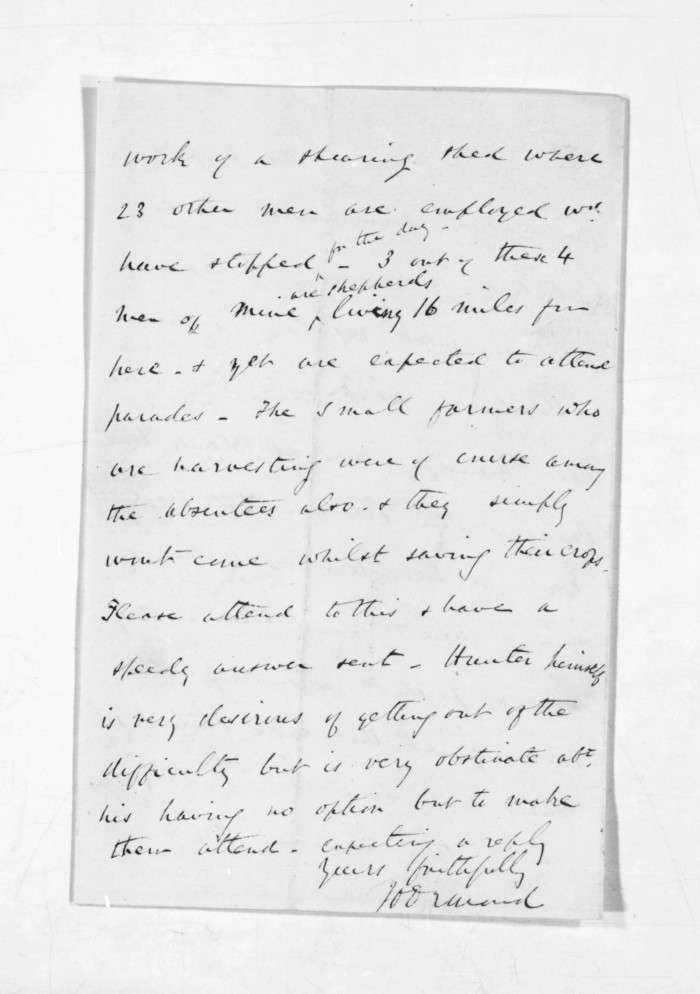 work of a shearing shed where
23 other men are employed wd.
have stopped for the day - 3 out of these 4
men of mine are shepherds living 16 miles from
here - & yet are expected to attend
parades - The small farmers who
are harvesting were of course among
the absentees also - & they simply
wont come whilst saving their crops.
Please attend to this & have a
speedy answer sent - Hunter himself
is very desirous of getting out of the
difficulty but is very obstinate abt.
his having no option but to make
them attend - expecting a reply
Yours faithfully
JD Ormond